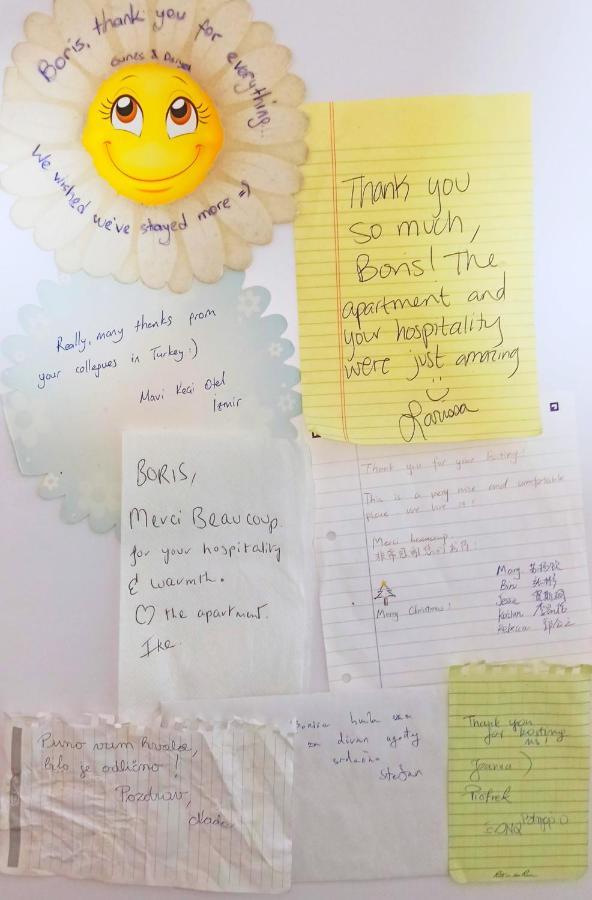 Boris, thank you for everything...
We wished we've stayed more =)
Really, many thanks from
your collegues in Turkey:)
Mavi Keçi Otel
İzmir
Thank you
so much,
Boris! The
apartment and
your hospitality
were just amazing
Larissa
BORIS,
Merci Beaucoup
for your hospitality
& warmth.
♡ the apartment.
Ike
Thank you for your hosting!
This is a very nice and comfortable
place we live in!
Merci beaucoup
Merry Christmas!
Mary
Bin
Jesse
Rebecca
Puno vam hvala,
bilo je odlično!
Pozdrav,
hvala vam
za divan
srdačno
Stefan
Thank you
for hosting
us!
Joanna
Piotrek